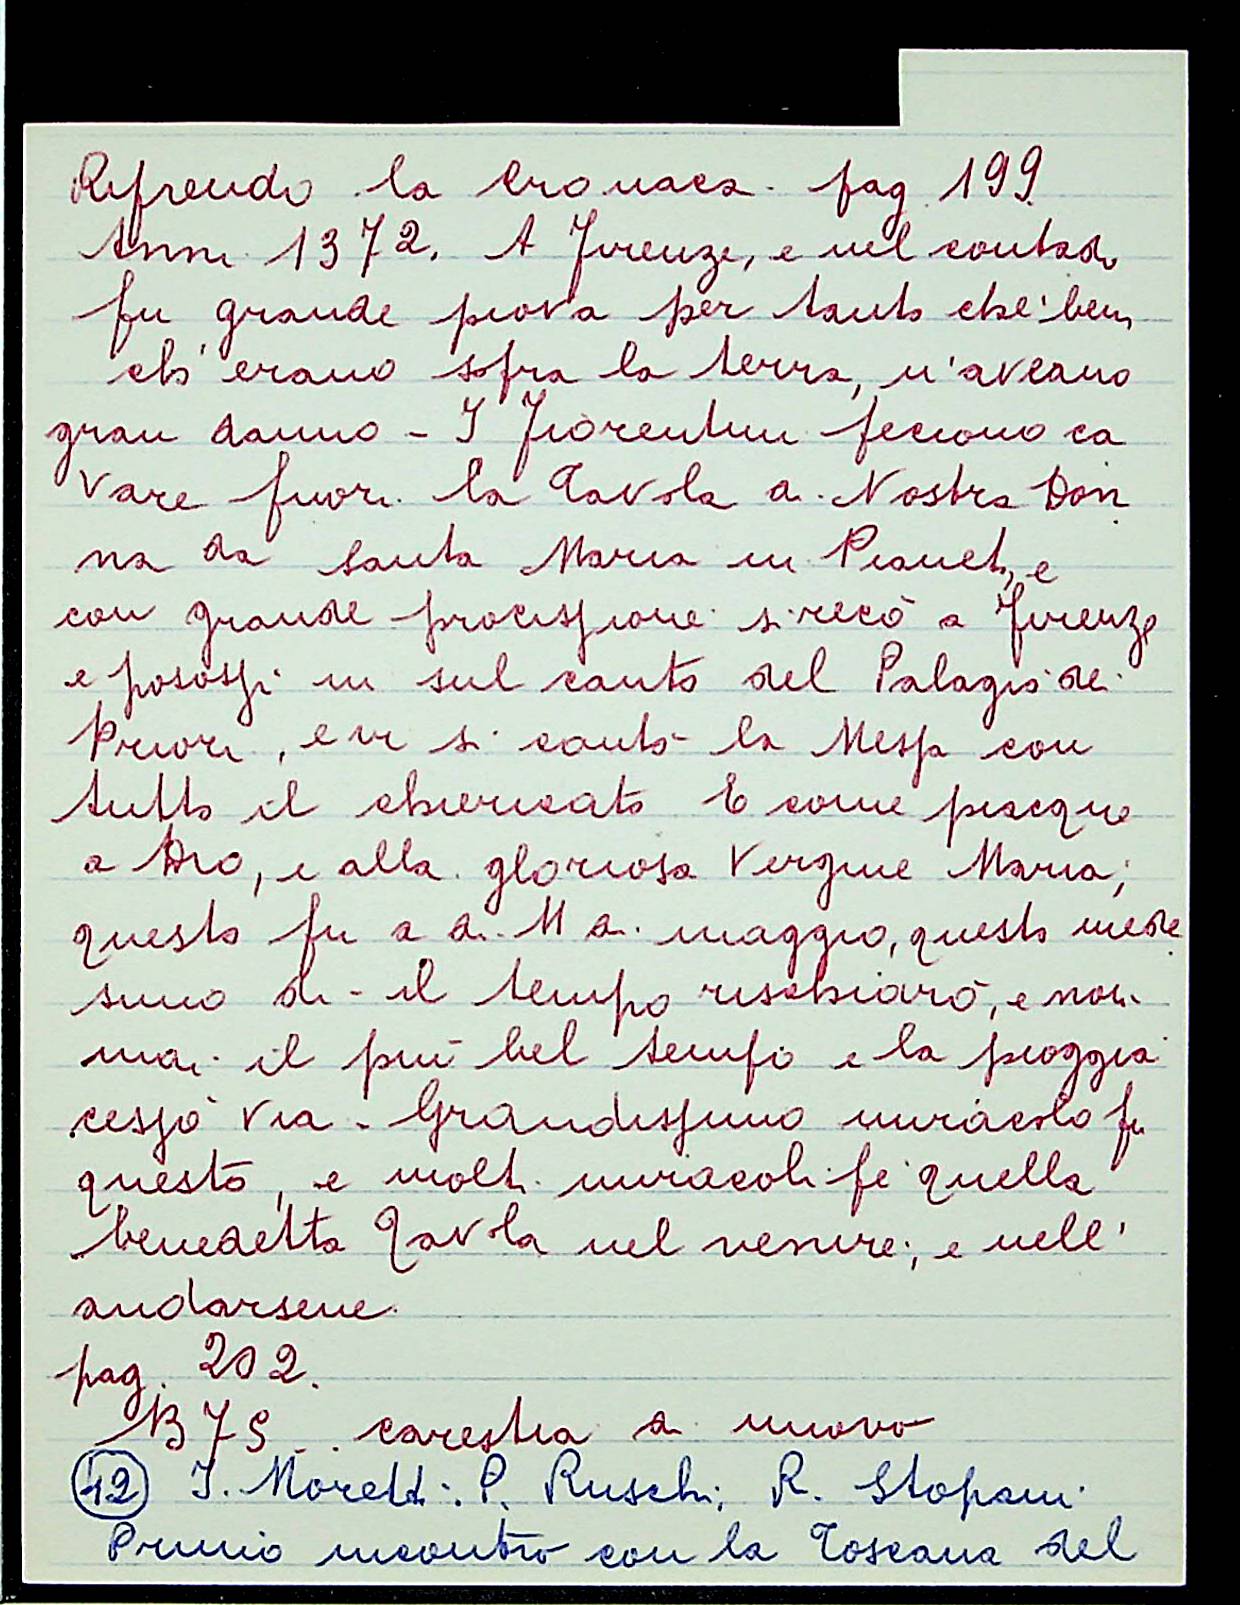 Riprendo la Cronaca. pag. 199
Anni 1372. A Firenze, e nel contado
fu grande piova per tanto che' beni
ch'erano sopra la terra, n'aveano
gran danno - I Fiorentini feciono ca
vare fuori la Tavola di Nostra Don
na da Santa Maria in Pianeta, e
con grande procissione si recò a Firenze
e posossi in sul canto del Palagio dei
Priori, e vi si cantò la Messa con
tutto il chiericato E come piacque
a Dio, e alla gloriosa Vergine Maria;
questo fu a dì 11 di maggio, questo mede
simo dì - il tempo rischiarò, e non
mai il più bel tempo e la pioggia
cessò via. Grandissimo miracolo fu
questo, e molti miracoli fe' quella
benedetta Tavola nel venire, e nell'
andarsene.
pag. 202.
carestia di nuovo
(42) I. Moretti. P. Ruschi; R. Stopani.
Primo incontro con la Toscana del